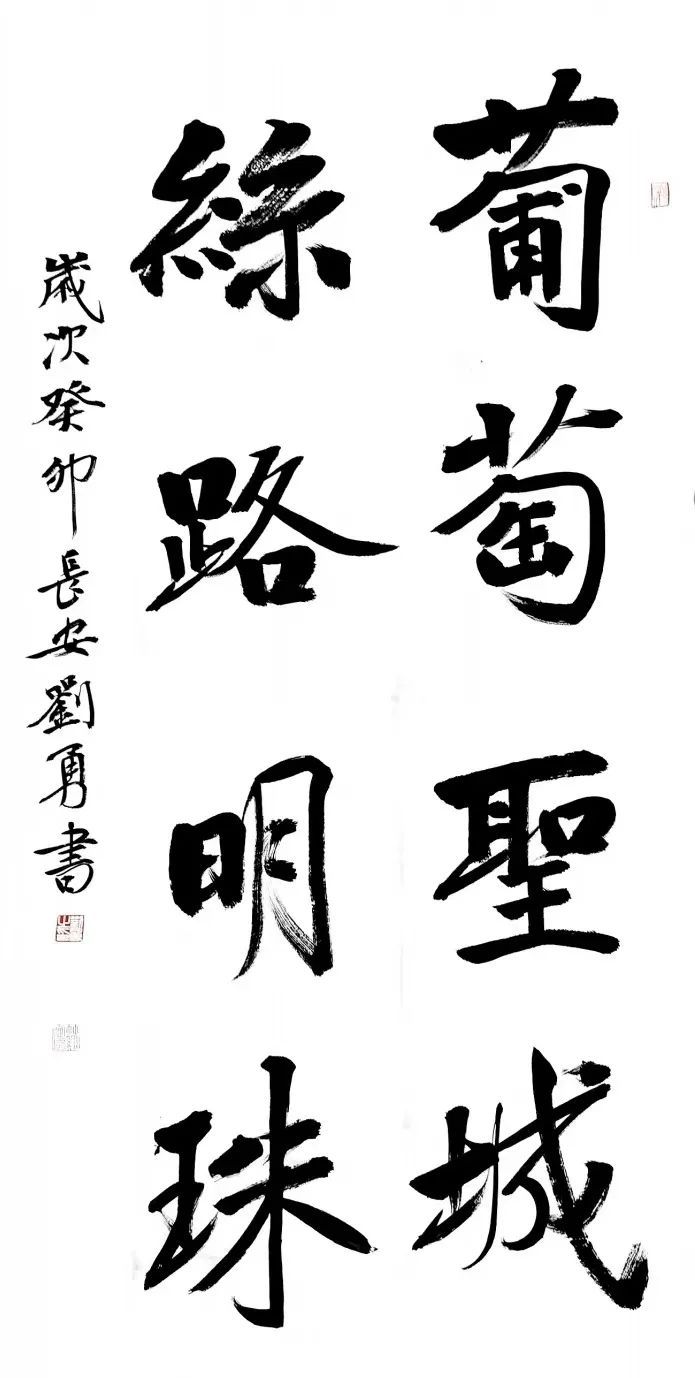 葡萄聖城
絲路明珠
歲次癸卯長安劉勇書